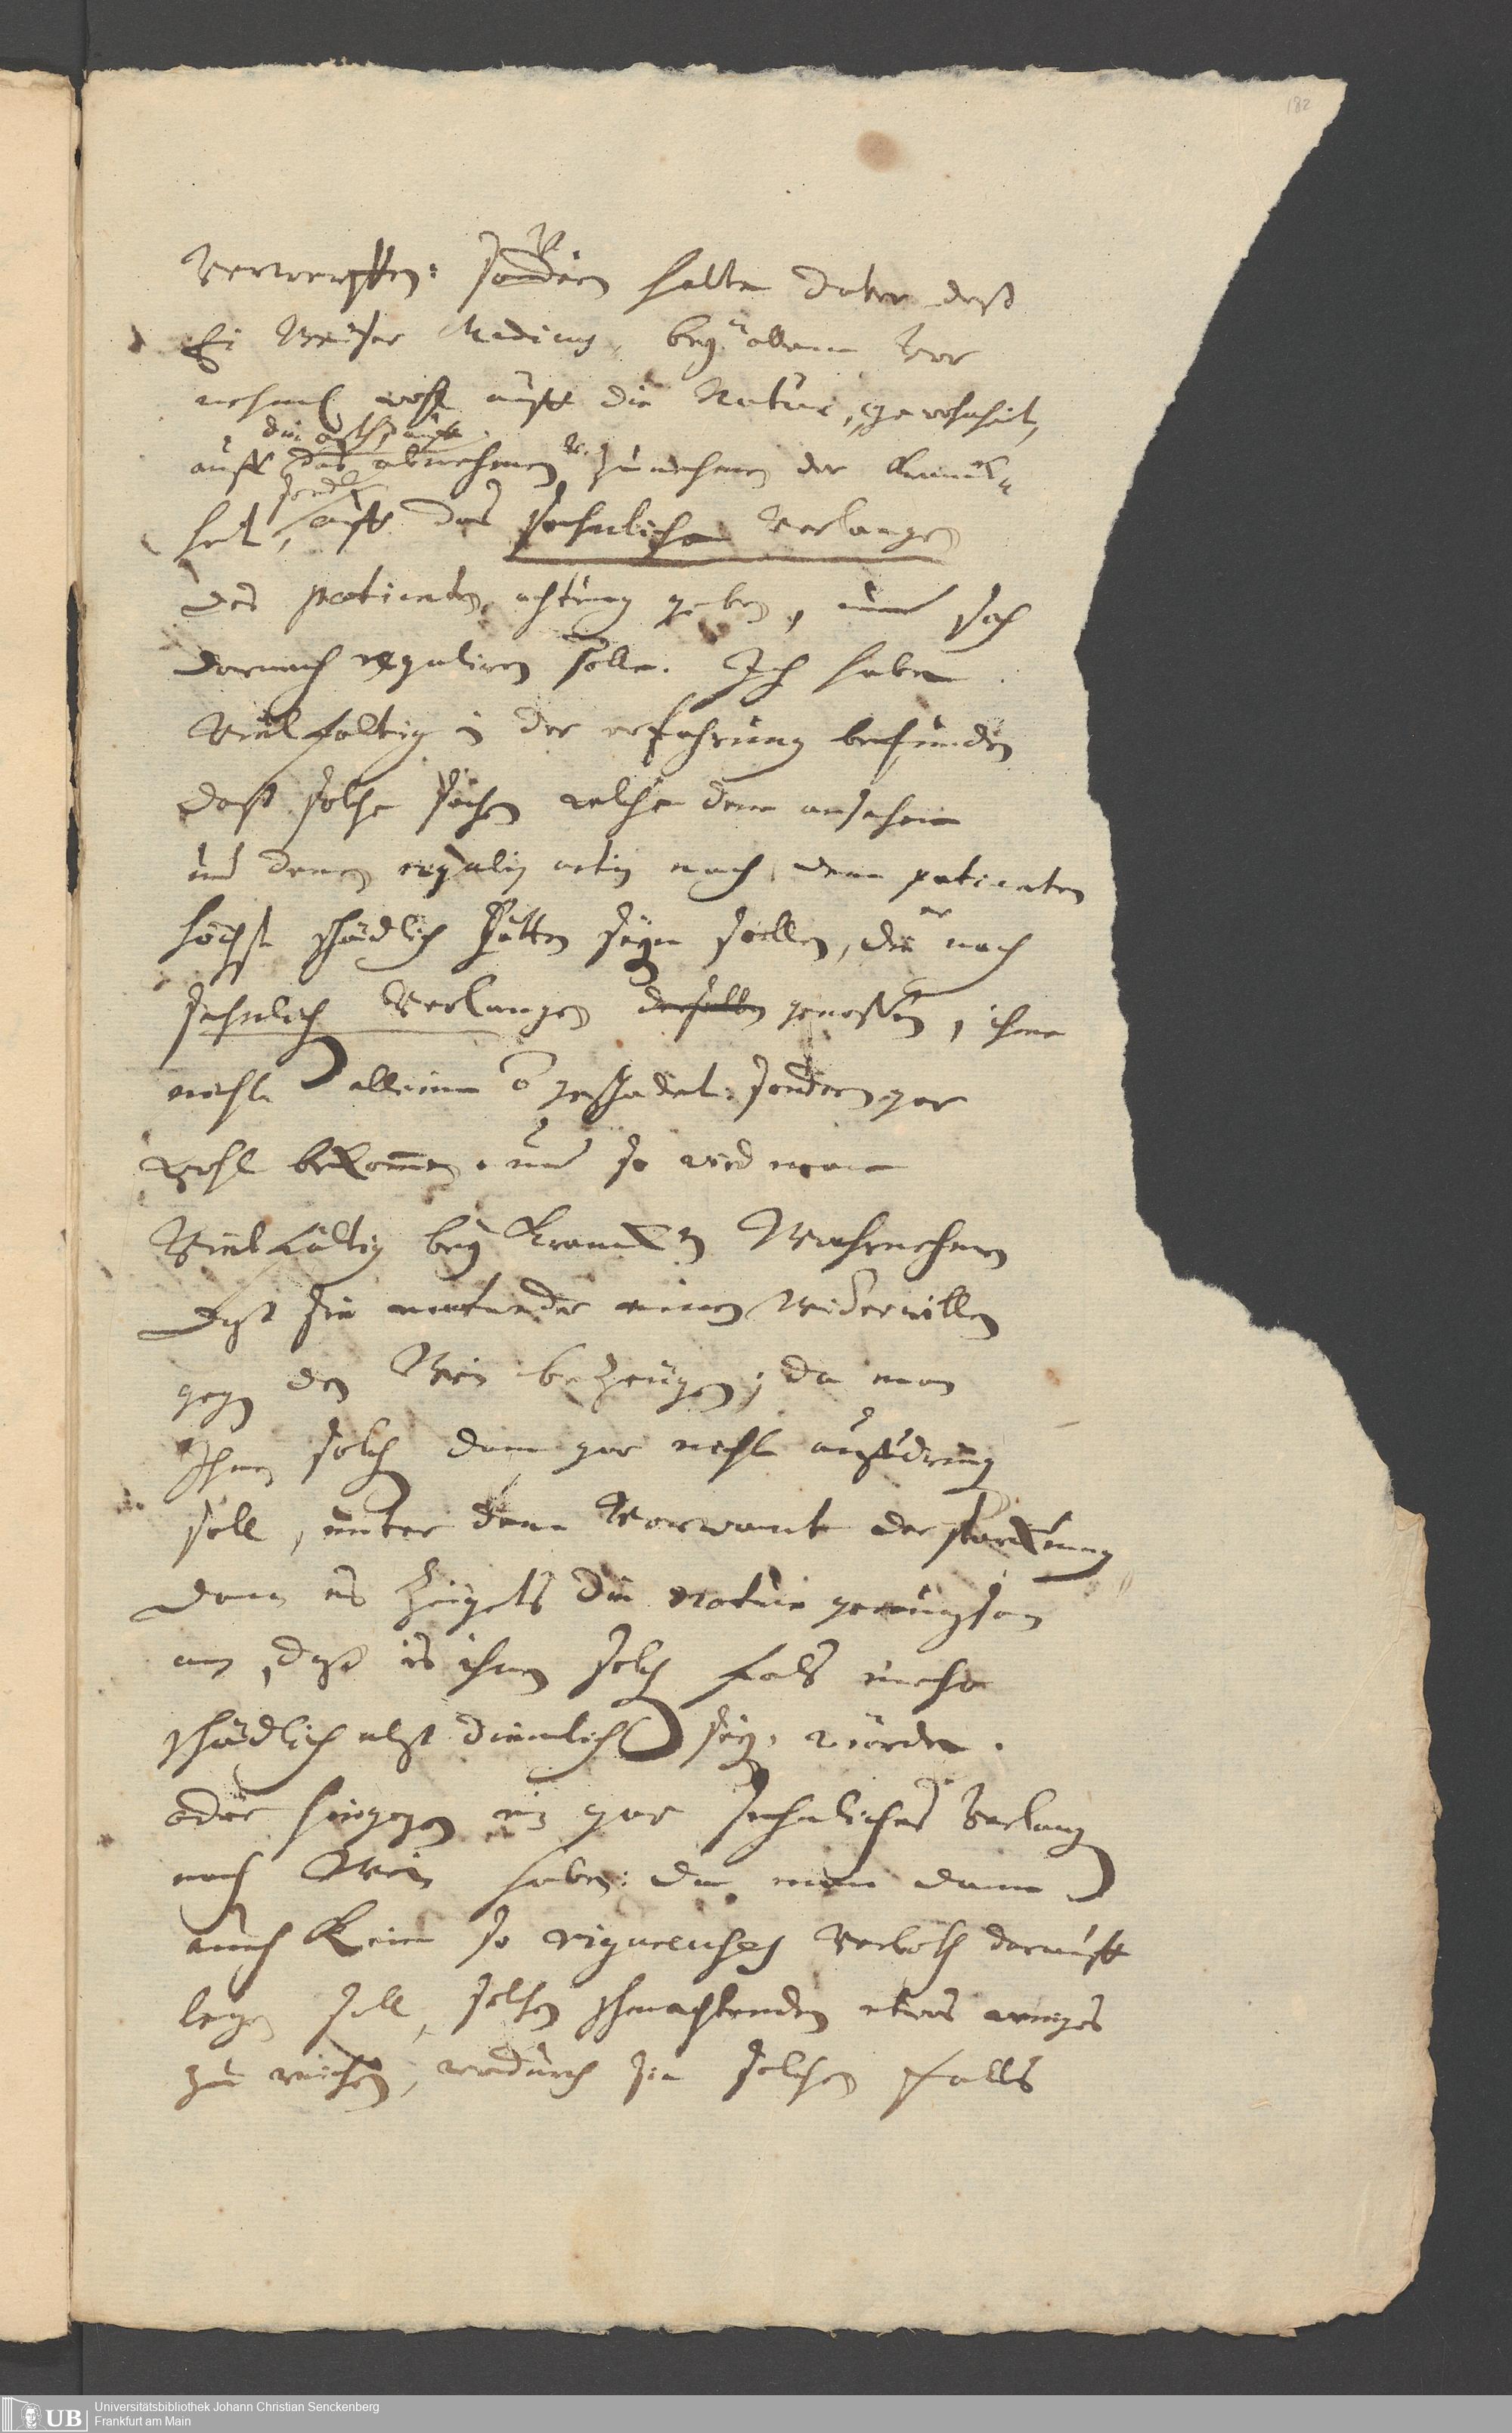 182
verwerffen: sondern halte davor daß
Ein Weiser Medicus, bey allem Vor
nehmen wohl auff die Natur, gewohnheit,
auff das abnehmen u. zunehmen der Kranck„
heit, auff das sehnliche Verlangen
des patienten, achtung geben, und sich
darnach reguliren solle. Ich habe
Vielfaltig in der erfahrung befunden
daß solche sachen welche dem ansehen
und denen regulis artis nach dem patienten
höchst schädlich hätten seyn sollen, die er nach
sehnlich Verlangen derselben genossen, ihme
nicht alleine geschadet: sondern gar
wohl bekommen. und so wird man
Vielfältig bey Krancken Wahrnehmen
daß sie entweder einen Widerwillen
gegen den Wein bezeugen, da man
Ihnen solchen dann gar nicht auffdringen
soll, unter dem Vorwant der starckung
dann es zeigets die natur genugsam
an, daß es ihnen solchen falls mehr
schädlich alß dienlich seyn würde.
oder hingegen ein gar sehnliches Verlangen
nach Wein haben: da man dann
auch Kein so rigueuses Verboth darauff
legen soll, solchen schmachtenden etwas weniges
zu reichen, wodurch sie solchen falls
Universitätsbibliothek Johann Christian Senckenberg
Frankfurt am Main
UB